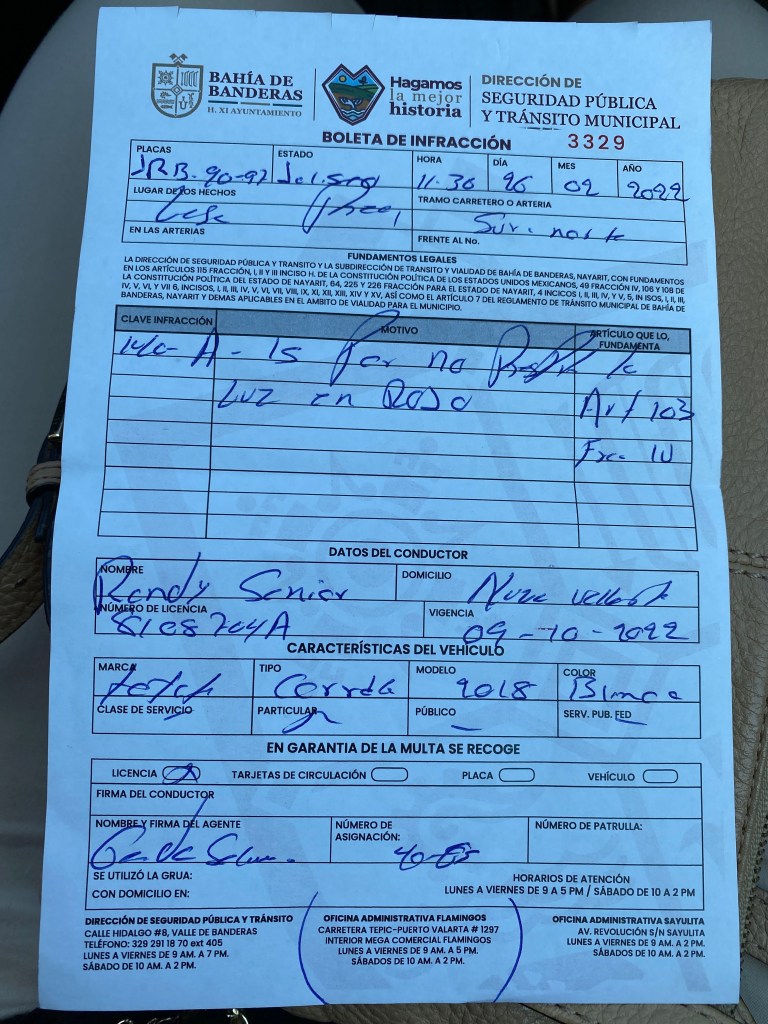 BAHÍA DE
BANDERAS
H. XI AYUNTAMIENTO
Hagamos
la mejor
historia
DIRECCIÓN DE
SEGURIDAD PÚBLICA
Y TRÁNSITO MUNICIPAL
BOLETA DE INFRACCIÓN
3329
PLACAS ESTADO HORA DÍA MES AÑO
JRB-90-97 11-30 26 02 2022
LUGAR DE LOS HECHOS TRAMO CARRETERO O ARTERIA
Sur. norte
EN LAS ARTERIAS FRENTE AL No.
FUNDAMENTOS LEGALES
LA DIRECCIÓN DE SEGURIDAD PÚBLICA Y TRANSITO Y LA SUBDIRECCIÓN DE TRANSITO Y VIALIDAD DE BAHÍA DE BANDERAS, NAYARIT, CON FUNDAMENTOS
EN LOS ARTÍCULOS 115 FRACCIÓN, I, II Y III INCISO H. DE LA CONSTITUCIÓN POLÍTICA DE LOS ESTADOS UNIDOS MEXICANOS, 49 FRACCIÓN IV, 106 Y 108 DE
LA CONSTITUCIÓN POLÍTICA DEL ESTADO DE NAYARIT, 64, 225 Y 226 FRACCIÓN PARA EL ESTADO DE NAYARIT, 4 INCICOS I, II, III, IV, Y V, 5, IN ISOS, I, II, III,
IV, V, VI, Y VII 6, INCISOS, I, II, III, IV, V, VI, VII, VIII, IX, XI, XII, XIII, XIV Y XV, ASÍ COMO EL ARTÍCULO 7 DEL REGLAMENTO DE TRÁNSITO MUNICIPAL DE BAHÍA DE
BANDERAS, NAYARIT Y DEMAS APLICABLES EN EL AMBITO DE VIALIDAD PARA EL MUNICIPIO.
CLAVE INFRACCIÓN MOTIVO ARTÍCULO QUE LO,
FUNDAMENTA
A-15 Por no la
Luz en Rojo Art 103
Frc. IV
DATOS DEL CONDUCTOR
NOMBRE DOMICILIO
Randy Senior
NÚMERO DE LICENCIA VIGENCIA
8108704A 09-10-2022
CARACTERÍSTICAS DEL VEHÍCULO
MARCA TIPO MODELO COLOR
2018 Blanco
CLASE DE SERVICIO PARTICULAR PÚBLICO SERV. PUB. FED
EN GARANTIA DE LA MULTA SE RECOGE
LICENCIA TARJETAS DE CIRCULACIÓN PLACA VEHÍCULO
FIRMA DEL CONDUCTOR
NOMBRE Y FIRMA DEL AGENTE NÚMERO DE
ASIGNACIÓN: NÚMERO DE PATRULLA:
SE UTILIZÓ LA GRUA: HORARIOS DE ATENCIÓN
CON DOMICILIO EN: LUNES A VIERNES DE 9 A 5 PM / SÁBADO DE 10 A 2 PM
DIRECCIÓN DE SEGURIDAD PÚBLICA Y TRÁNSITO
CALLE HIDALGO #8, VALLE DE BANDERAS
TELÉFONO: 329 291 18 70 ext 405
LUNES A VIERNES DE 9 AM. A 7 PM.
SÁBADO DE 10 AM. A 2 PM.
OFICINA ADMINISTRATIVA FLAMINGOS
CARRETERA TEPIC-PUERTO VALARTA # 1297
INTERIOR MEGA COMERCIAL FLAMINGOS
LUNES A VIERNES DE 9 AM. A 5 PM.
SÁBADOS DE 10 AM. A 2 PM.
OFICINA ADMINISTRATIVA SAYULITA
AV. REVOLUCIÓN S/N SAYULITA
LUNES A VIERNES DE 9 AM. A 2 PM.
SÁBADOS DE 10 AM. A 2 PM.